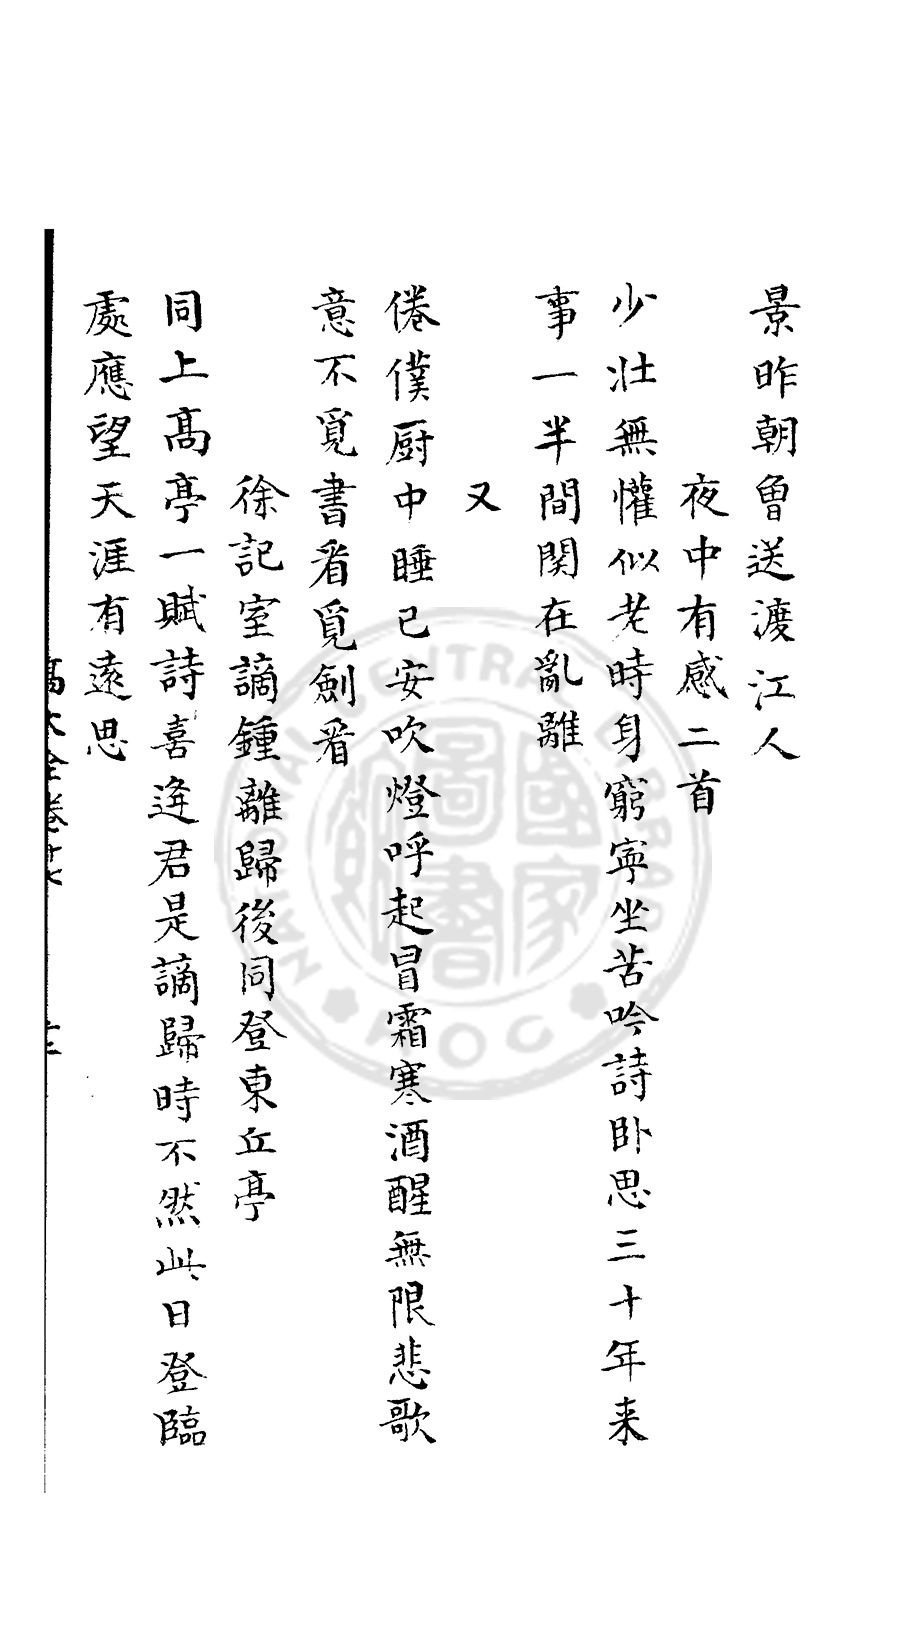 景昨朝曾送渡江人
夜中有感二首
少壯無懽似老時身窮寜坐苦吟詩卧思三十年来
事一半間関在亂離
又
倦僕厨中睡已安吹燈呼起冒霜寒酒醒無限悲歌
意不覓書看覓劍看
徐記室謫鍾離歸後同登東丘亭
同上髙亭一賦詩喜逢君是謫歸時不然此日登臨
處應望天涯有遠思
NATIONAL CENTRAL LIBRARY
ROC
國家圖書館